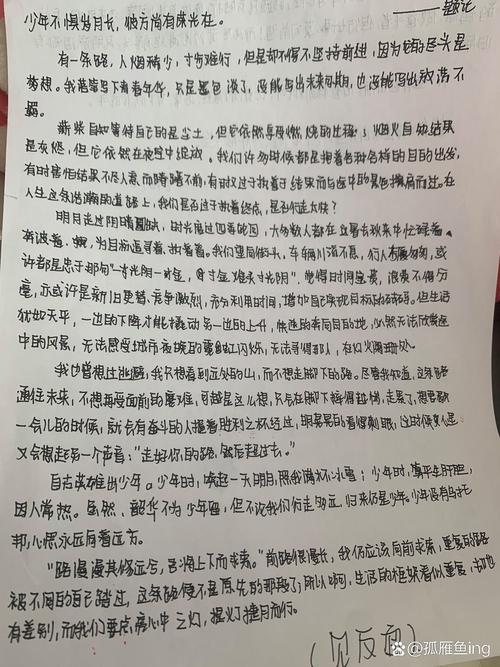 ——题记
少年不惧岁月长，彼方尚有荣光在。
有一条路，人烟稀少，寸步难行，但是却不得不坚持前进，因为它的尽头是
梦想。我蘸笔写下青春年华，只是墨色淡了，没能写出未来可期，也没能写出放浪不
羁。
薪柴自知等待自己的是尘土，但它依然享受燃烧的过程；烟火自知结果
是灰烬，但它依然在夜空中绽放。我们许多时候都是抱着各种各样的目的出发，
有时害怕结果不尽人意而踌躇不前，有时又过于执着于结果而与途中的景色擦肩而过。在
人生这条浩瀚的道路上，我们是否过于执着终点，是否行走太快？
明月走过阴晴圆缺，时光度过四季轮回，大多数人都在立春去秋来中忙碌着。
奔波着、为目标追寻着、执着着。我们望向街头，车辆川流不息，行人匆匆，或
许都是忠于那句“一寸光阴一寸金，寸金难买寸光阴”。觉得时间宝贵，浪费不得分
毫，亦或许是新旧更替、竞争激烈，充分利用时间，增加自己实现目标的。但生活
犹如天平，一边的下降才能撬动另一边的上升，快速的奔向目的地，必然无法欣赏途
中的风景，无法感受城市夜晚的霓虹闪烁，无法寻得那人，在灯火阑珊处。
我也曾想过逃避，我只想看到远处的山，而不想走脚下的路。尽管我知道，这条路
通往未来，不想再受面前的磨难，可越是这么想，只会在脚下摔得越惨，走累了，想要歇
一会儿的时候，就会有奋斗的人握着胜利之杯经过，明晃晃的看得刺眼，这时候
又会想起另一个声音：“走好你的路，然后超过去。”
自古英雄出少年。少年时，唤起一天明月，照我满怀冰雪；少年时，算平生肝胆，
因人常热。虽然，韶华不为少年留，但不论我们行走多远，归来仍是少年。少年没有乌托
邦，心思永远向着远方。
“路漫漫其修远兮，吾将上下而求索。”前路很漫长，我仍应该向前求索，重复的路
被不同的自己踏过，这条路便不是原先的那段了；所以啊，生活的框架看似重复，却
有差别，而我们要点心中之灯，提灯踏月而行。
（见反面）
百家号/孤雁鱼ing